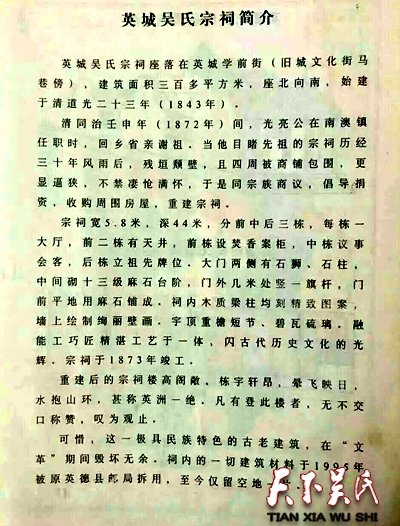 英城吴氏宗祠简介
英城吴氏宗祠座落在英城学前街（旧城文化街马
巷傍），建筑面积三百多平方米，座北向南，始建
于清道光二十三年（1843年）。
清同治壬申年（1872年）间，光亮公在南澳镇
任职时，回乡省亲谢祖。当他目睹先祖的宗祠历经
三十年风雨后，残垣颓壁，且四周被商铺包围，更
显逼狭，不禁凄怆满怀，于是同宗族商议，倡导捐
资，收购周围房屋，重建宗祠。
宗祠宽5.8米，深44米，分前中后三栋，每栋一
大厅，前二栋有天井，前栋设焚香案柜，中栋议事
会客，后栋立祖先牌位。大门两侧有石狮、石柱，
中间砌十三级麻石台阶，门外几米处竖一旗杆，门
前平地用麻石铺成。祠内木质梁柱均刻精致图案，
墙上绘制绚丽壁画。宇顶重檐短节、碧瓦硫璃。融
能工巧匠精湛工艺于一体，闪古代历史文化的光
辉。宗祠于1873年竣工。
重建后的宗祠楼高阁敞，栋宇轩昂，晕飞映日，
水抱山环，甚称英洲一绝。凡有登此楼者，无不交
口称赞，叹为观止。
可惜，这一极具民族特色的古老建筑，在“文
革”期间毁坏无余。祠内的一切建筑材料于1995年
被原英德县邮局拆用，至今仅留空地
天下吴氏
TIAN XIA WU SHI